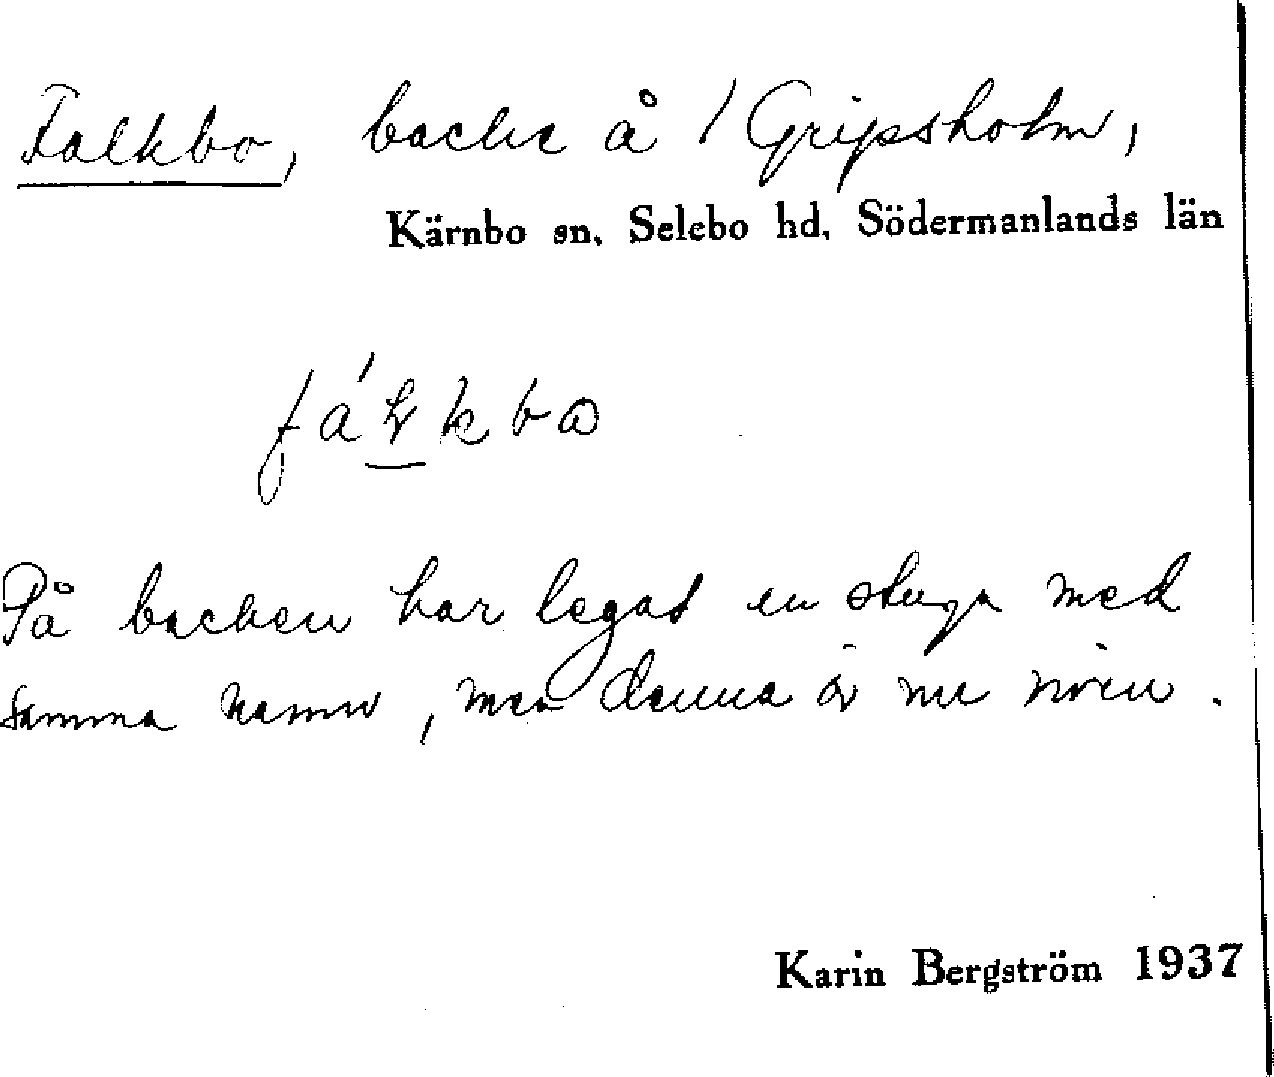 Falkbo, backe å / Gripsholm,
Kärnbo sn, Selebo hd, Södermanlands län
På backen har legat en stuga med
samma namn, men denna är nu riven.
Karin Bergström 1937